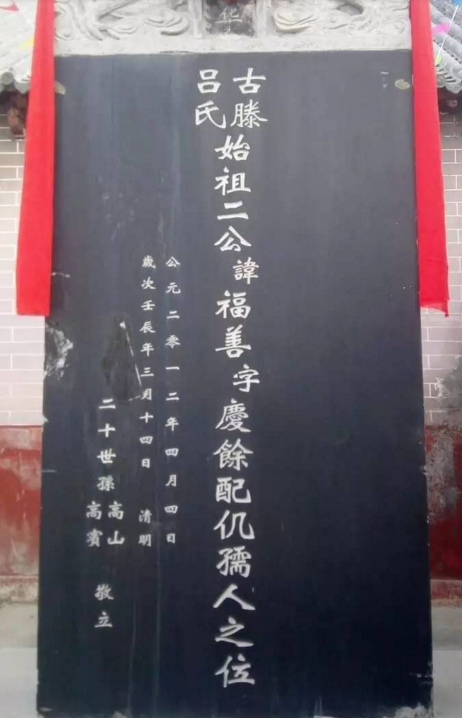 古滕
吕氏
始祖二公諱福善字慶餘配仉孺人之位
公元二零一二年四月四日
歲次壬辰年三月十四日 清明
二十世孫
高山
高賓
敬立